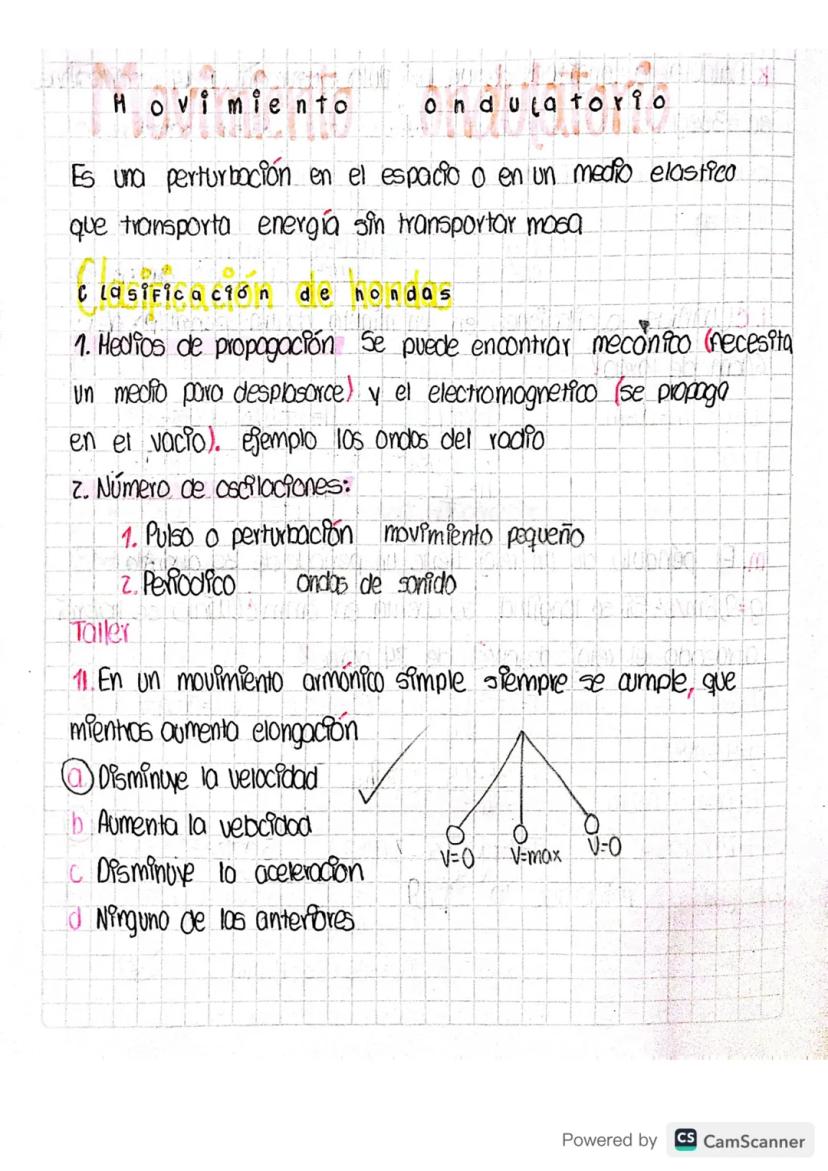 Movimiento ondulatorio
Es una perturbación en el espacio o en un medio elastico
que transporta energía sin transportar masa
Clasificación de hondas
1. Medios de propagación Se puede encontrar mecánico (necesita
un medio para desplasarce) y el electromagnetico (se propaga
en el vacio). ejemplo las ondas del radio
2. Número de oscilaciones:
1. Pulso o perturbación movimiento pequeño
2. Periodico ondas de sonido
Taller
11. En un movimiento armónico simple siempre se cumple, que
mientras aumenta elongación
a Disminuye la velocidad
b Aumenta la velocidad
c Disminuye la aceleracion
d Ninguno de las anteriores
V=0 V=max V=0
Powered by CS CamScanner